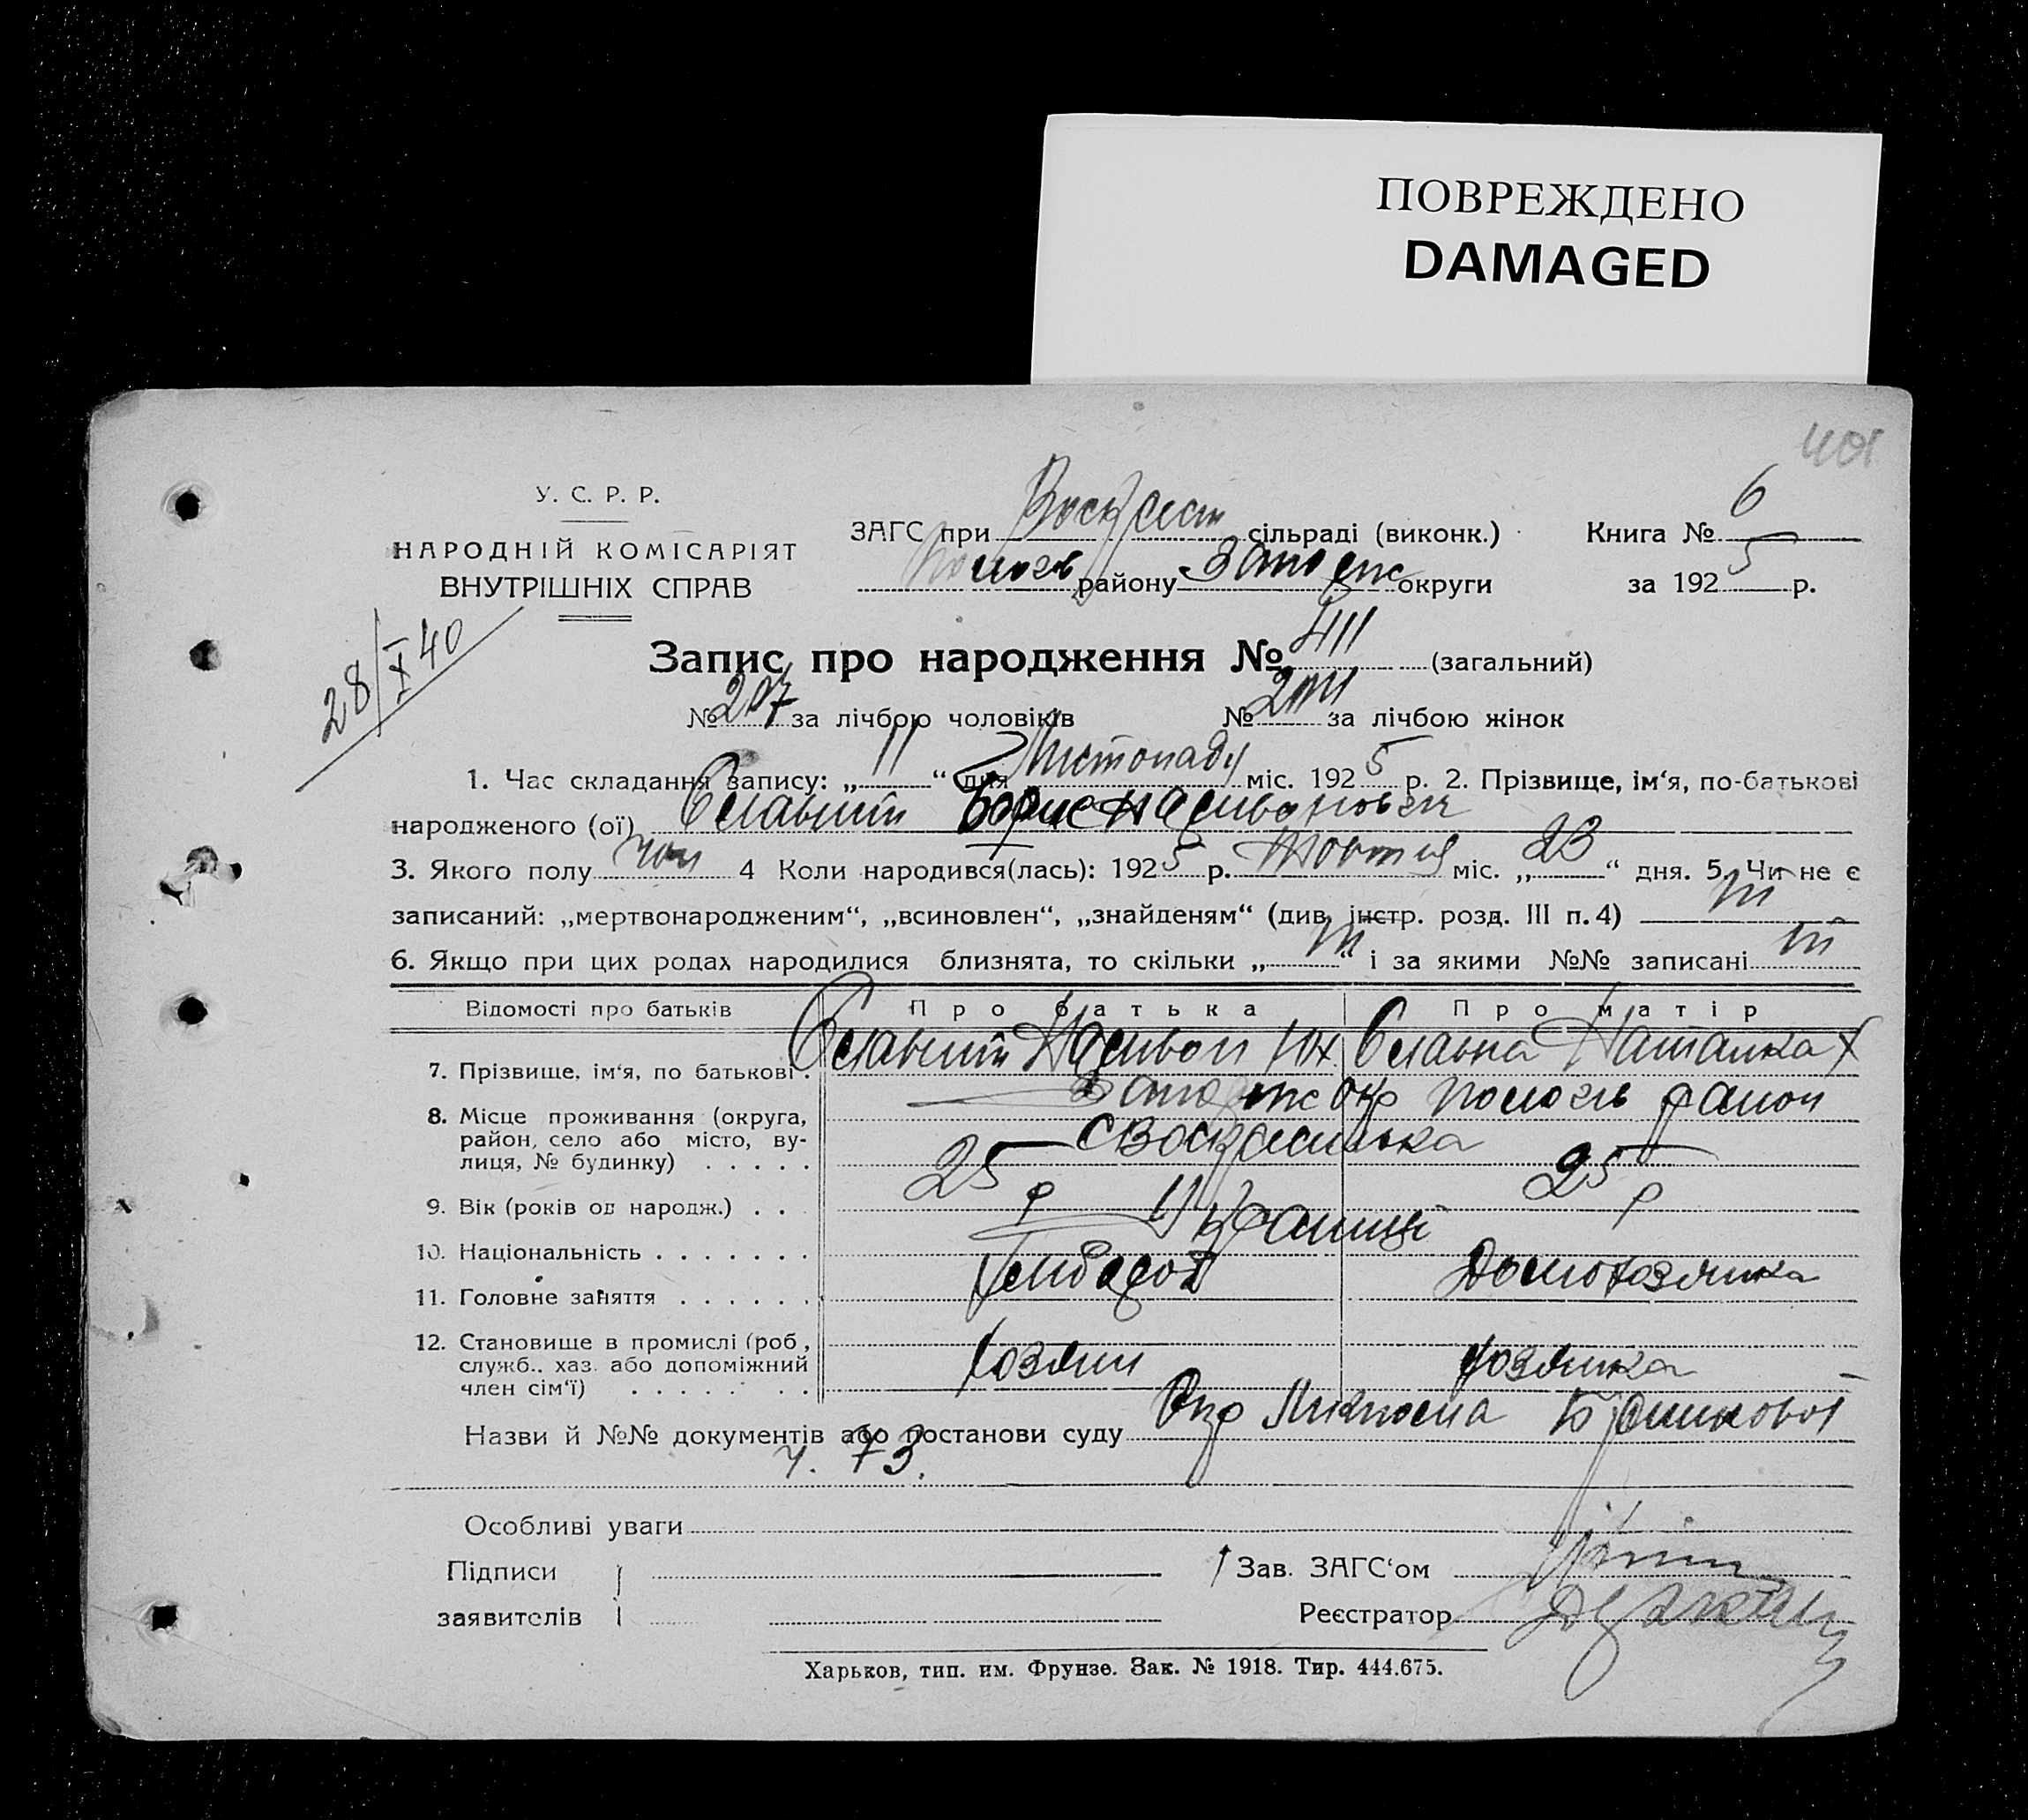 ПОВРЕЖДЕНО
DAMAGED
401
У. С. Р. Р.
НАРОДНІЙ КОМІСАРІЯТ
ВНУТРІШНІХ СПРАВ
28/X 40
ЗАГС при Воскресен сільраді (виконк.)
Пологів району Запоріж округи
Книга № 6
за 1925 р.
Запис про народження № 411 (загальний)
№ 207 за лічбою чоловіків № 204 за лічбою жінок
1. Час складання запису: „11“ дня Листопаду міс. 1925 р. 2. Прізвище, ім‘я, по-батькові
народженого (ої) Борис
3. Якого полу чол 4 Коли народився(лась): 1925 р. Жовтня міс. „23“ дня. 5. Чи не є
записаний: „мертвонародженим“, „всиновлен“, „знайденям“ (див. інстр. розд. III п. 4) ні
6. Якщо при цих родах народилися близнята, то скільки „ні“ і за якими №№ записані ні
Відомості про батьків Про батька Про матір
7. Прізвище, ім‘я, по батькові . Наталка
8. Місце проживання (округа,
район, село або місто, ву-
лиця, № будинку) . . . . .
Запоріж окр Пологів район
с Воскресенька
9. Вік (років од народж.) . . 25 р 25 р
10. Національність . . . . . . . Українці
11. Головне заняття . . . . . . Хлібороб Домохозяика
12. Становище в промислі (роб,
служб., хаз. або допоміжний
член сім‘ї) . . . . . . .
Хозяин Хозяика
Назви й №№ документів або постанови суду
ч. 73.
Особливі уваги
Підписи
заявителів
Зав. ЗАГС‘ом
Реєстратор
Харьков, тип. им. Фрунзе. Зак. № 1918. Тир. 444.675.